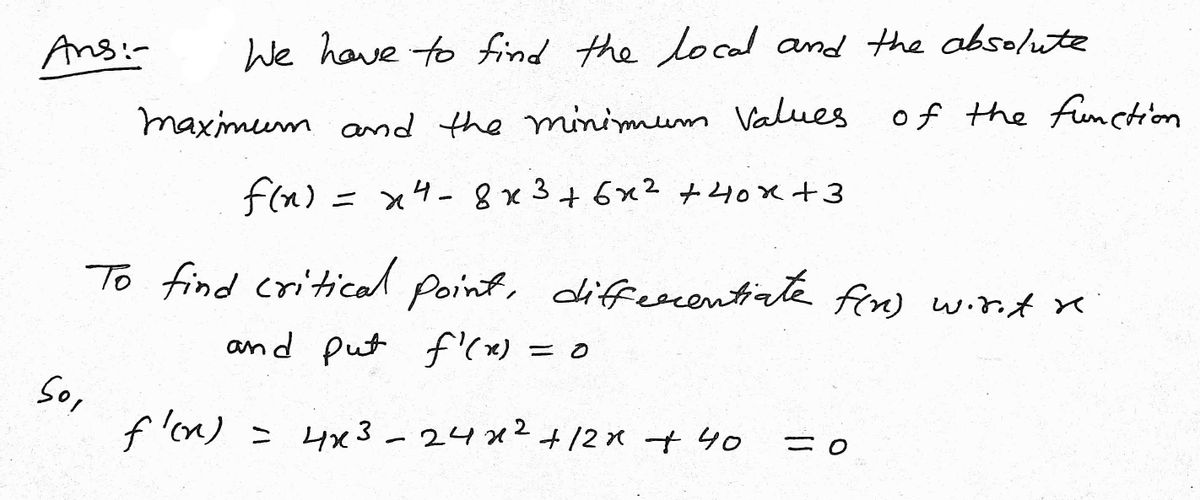 Ans:- We have to find the local and the absolute
maximum and the minimum values of the function
f(x) = x⁴ - 8x³ + 6x² + 40x + 3
To find critical point, differentiate f(x) w.r.t x
and put f'(x) = 0
So,
f'(x) = 4x³ - 24x² + 12x + 40 = 0